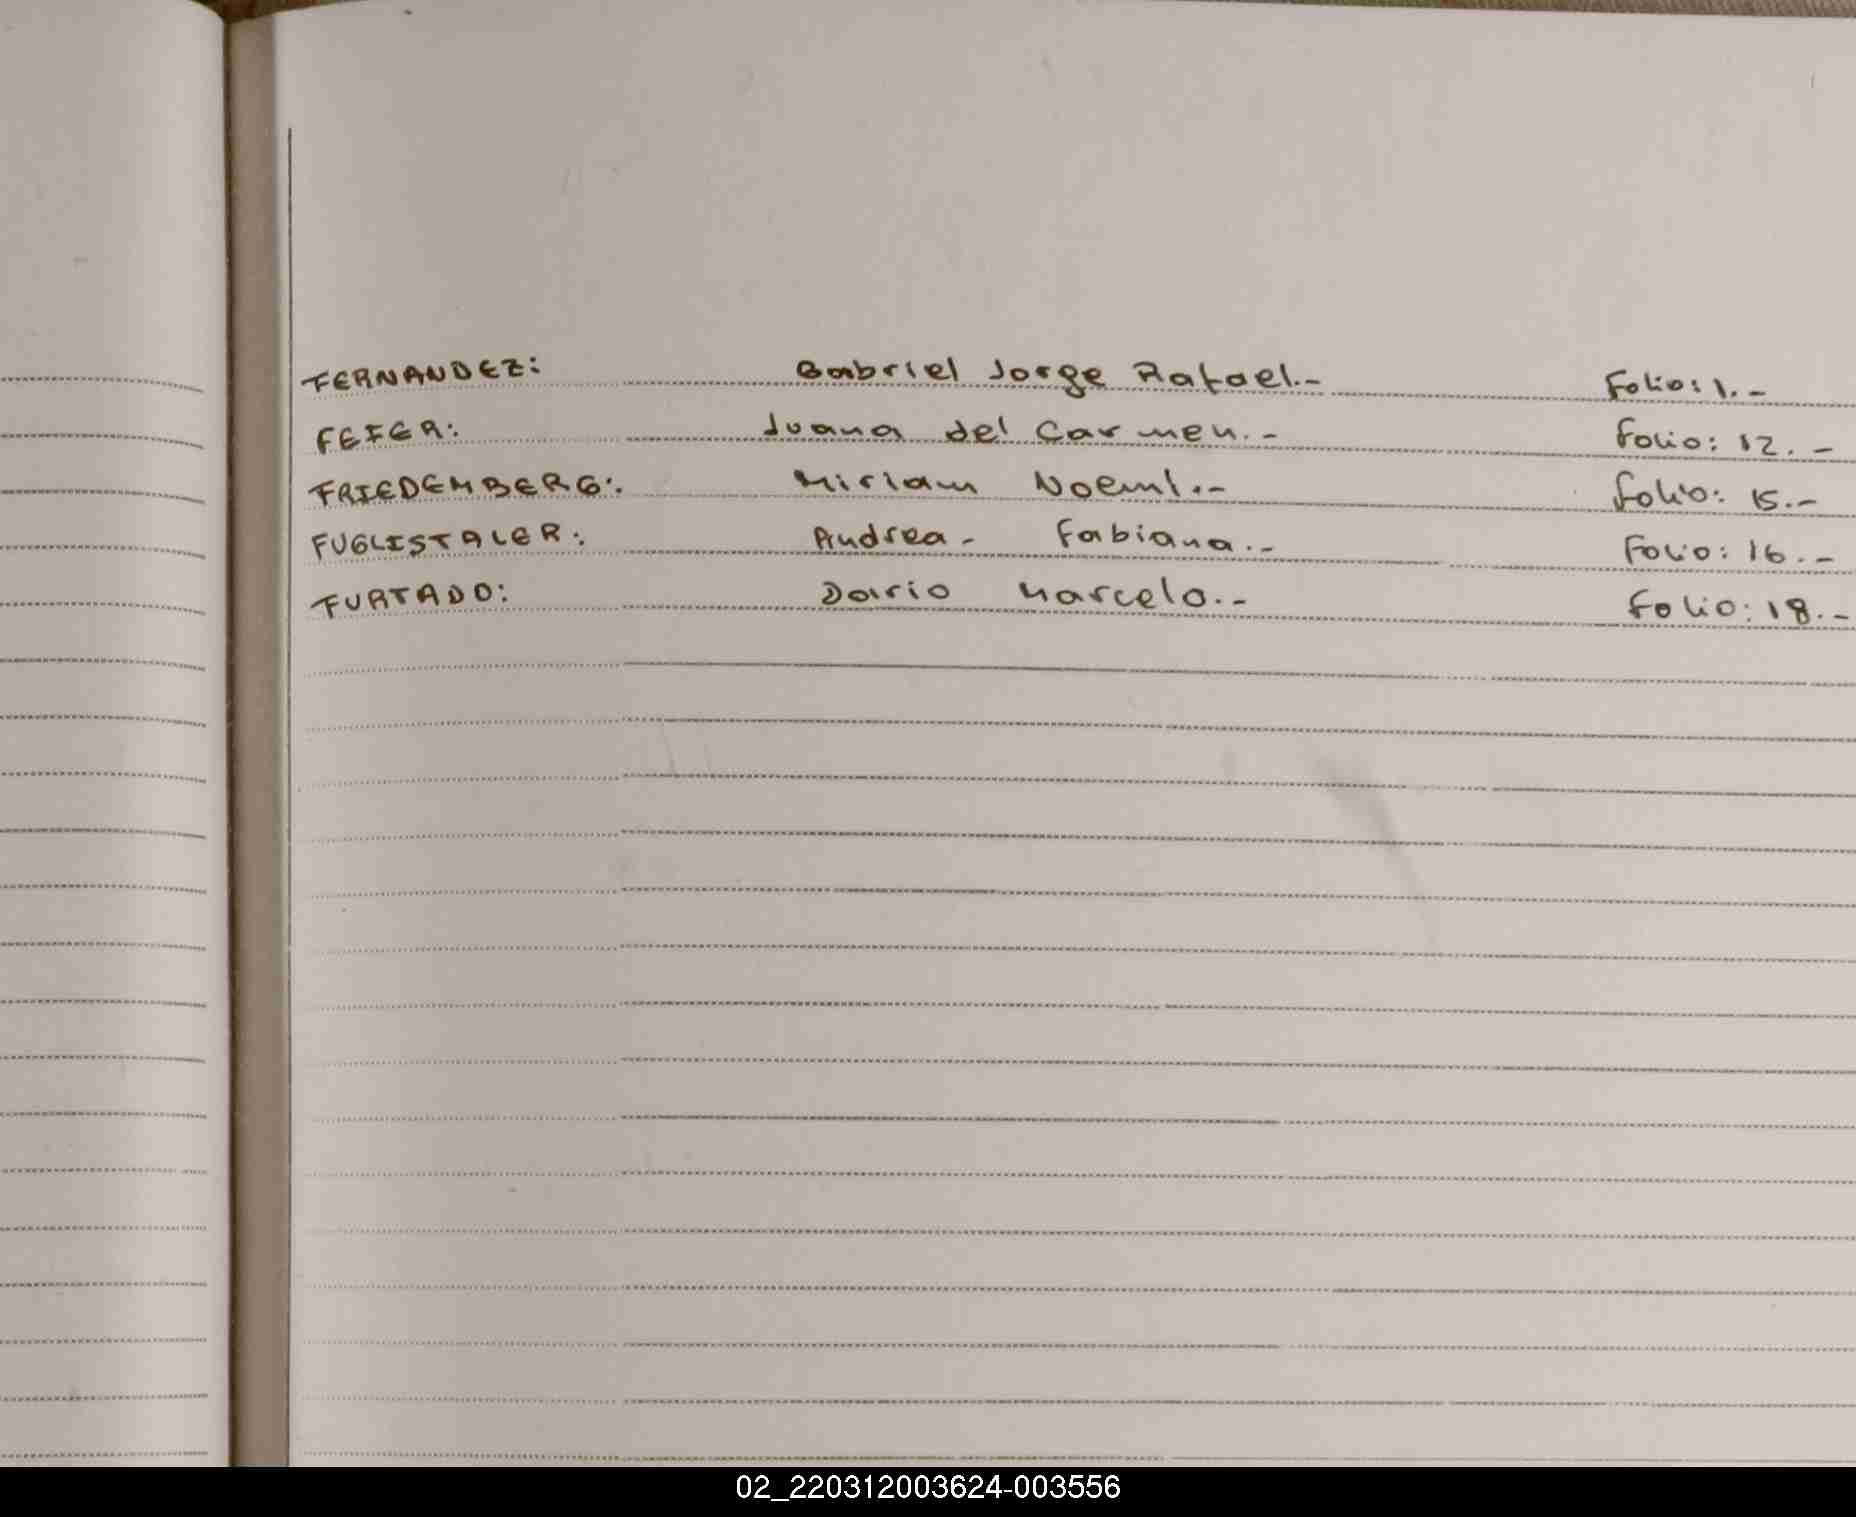 FERNANDEZ: Gabriel Jorge Rafael.- Folio: 1.-
FEIER: Juana del Carmen.- Folio: 12.-
FRIEDEMBERG: Miriam Noemi.- Folio: 15.-
FUGLISTALER: Andrea - Fabiana.- Folio: 16.-
FURTADO: Dario Marcelo.- Folio: 18.-
02_220312003624-003556